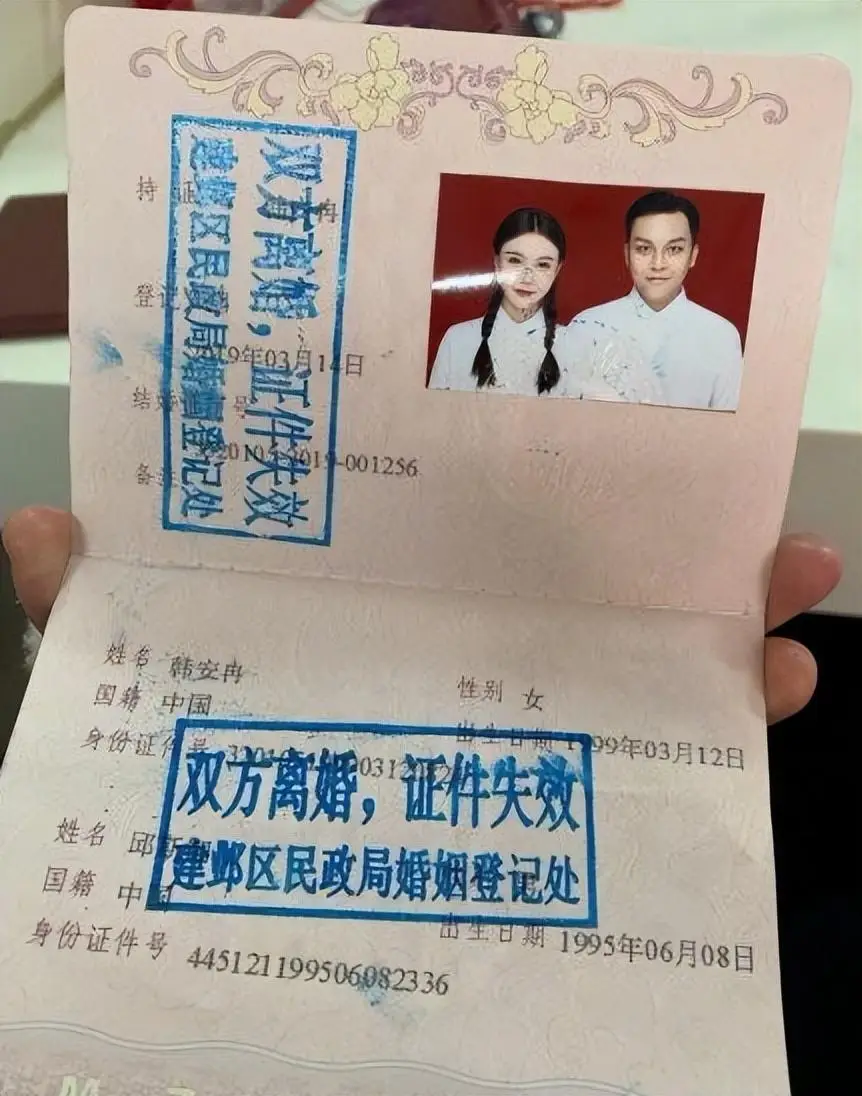 持证 冉
双方离婚，证件失效
建邺区民政局婚姻登记处
登记
2019年03月14日
结婚 号
2019-001256
备
姓名 韩安冉
性别 女
国籍 中国
出生日期 1999年03月12日
身份证件号
双方离婚，证件失效
建邺区民政局婚姻登记处
姓名 邱
国籍 中国
出生日期 1995年06月08日
身份证件号 445121199506082336